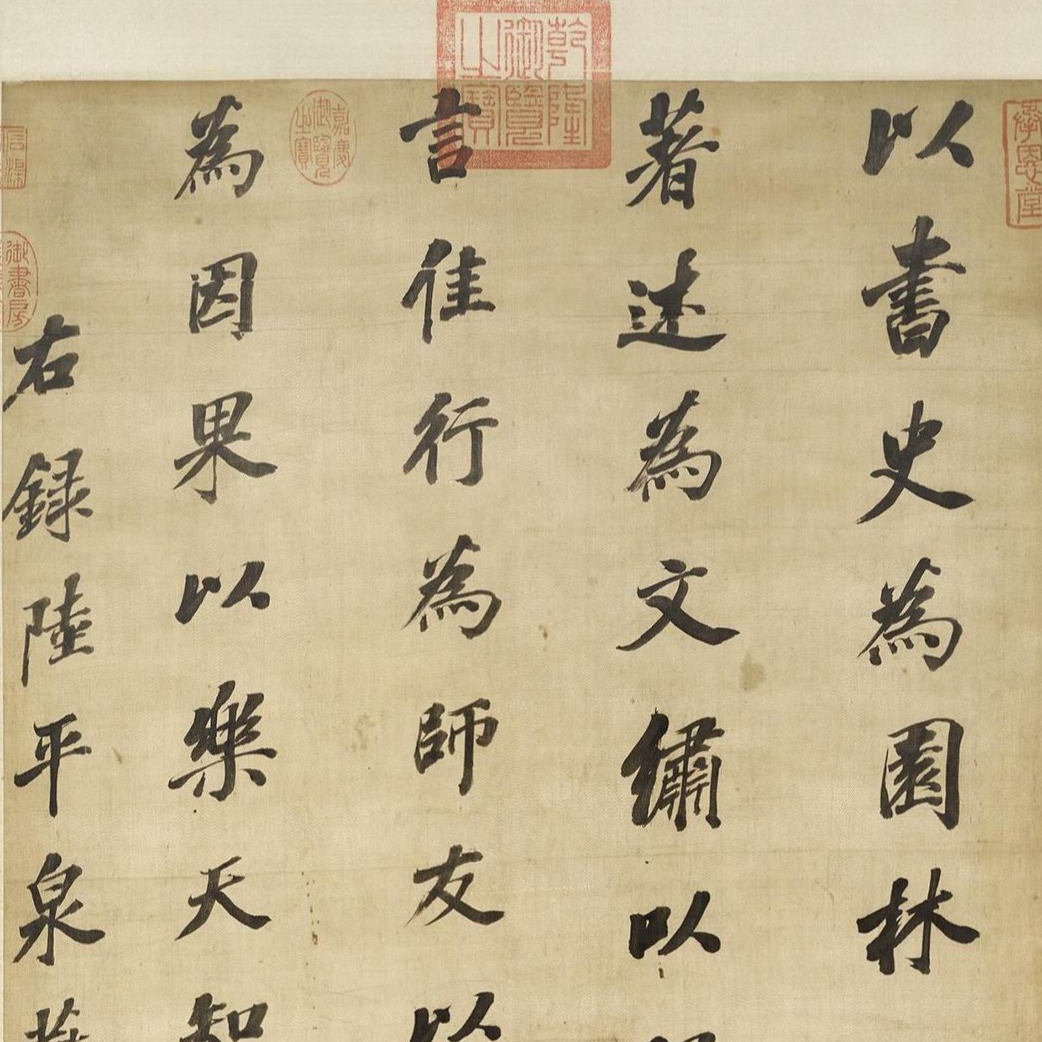 以書史為園林
著述為文繡以
言佳行為師友以
為因果以樂天知
右錄陸平泉
乾隆御覽之寶
嘉慶御覽之寶
御書房